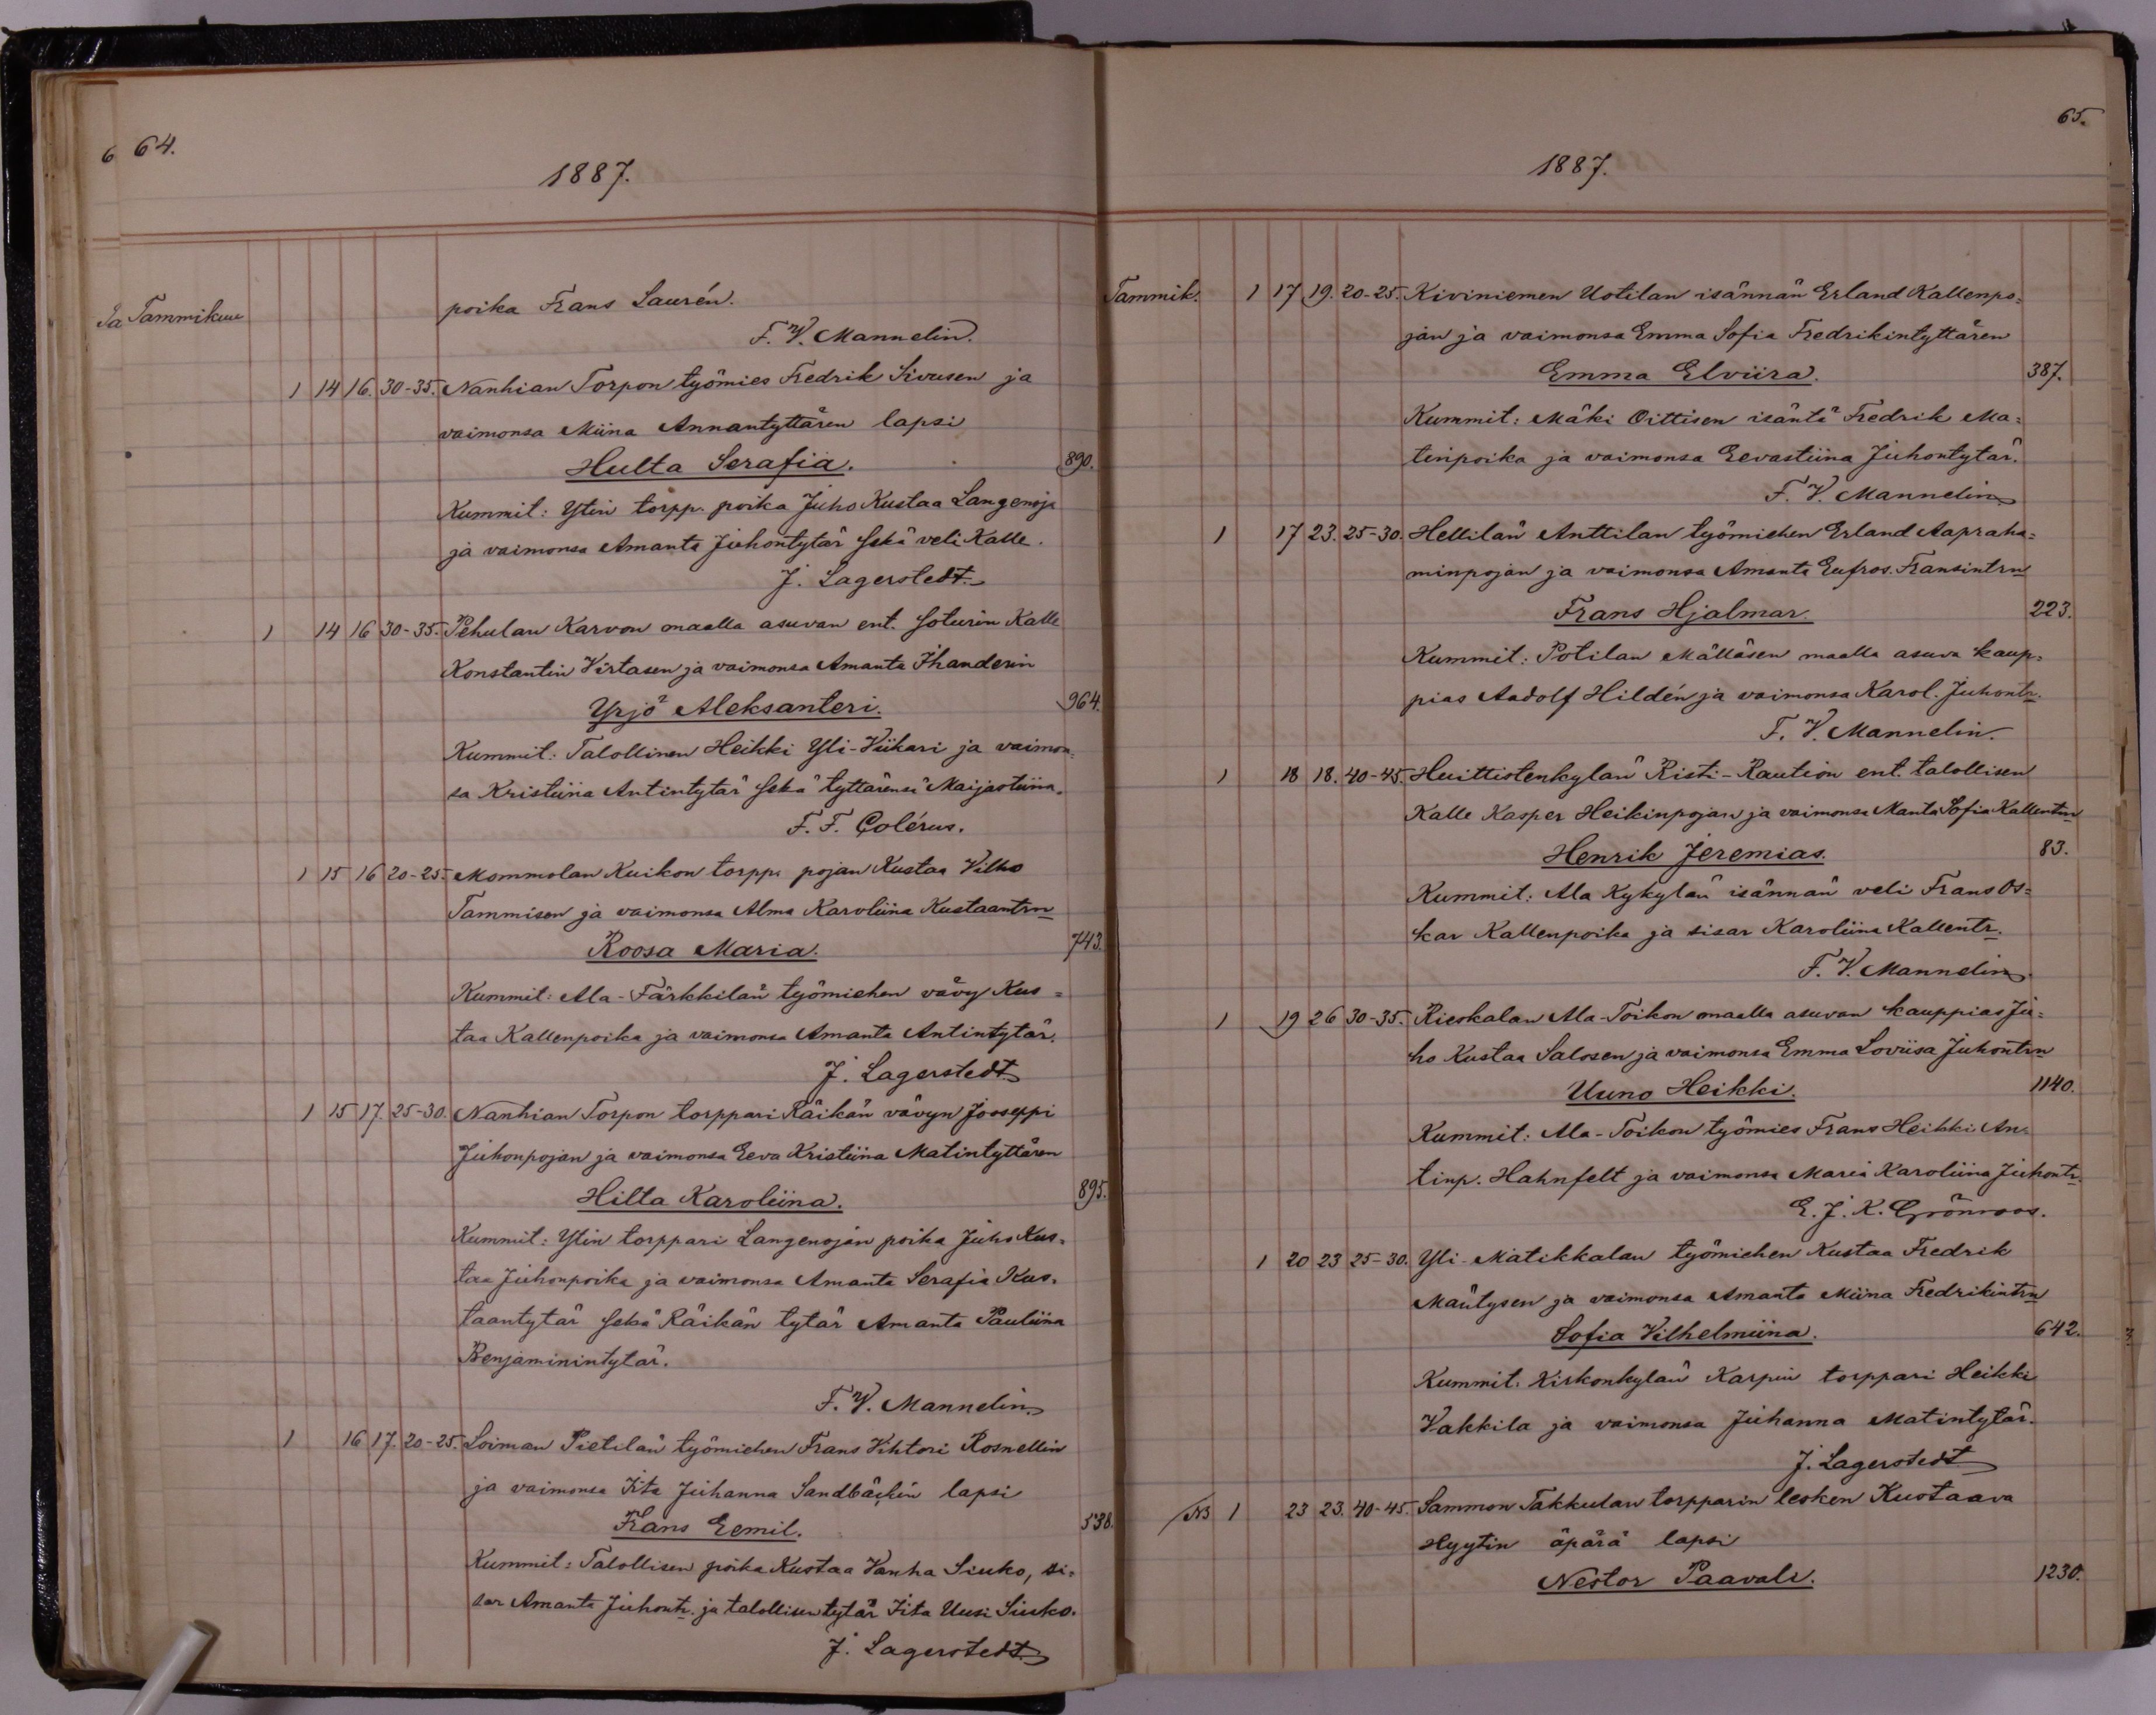 6 64.
1887.
Ja Tammikuu
poika Frans Laurén.
F. V. Mannelin.
1 14 16. 30-35. Nanhian Torpon työmies Fredrik Sivusen ja
vaimonsa Miina Annantyttären lapsi
Hulta Serafia. 890.
Kummit: Ytin torpp. poika Juho Kustaa Langenoja
ja vaimonsa Amanta Juhontytär sekä veli Kalle.
J. Lagerstedt.
1 14 16 30-35. Pehulan Karvon maalla asuvan ent. soturin Kalle
Konstantin Virtasen ja vaimonsa Amanta Ihanderin
Yrjö Aleksanteri. 964.
Kummit: Talollinen Heikki Yli-Viikari ja vaimon-
sa Kristiina Antintytär sekä tyttärensä Maijastiina.
F. F. Colérus.
1 15 16 20-25. Mommolan Kuikon torpp. pojan Kustaa Vilho
Tammisen ja vaimonsa Alma Karoliina Kustaantrn
Roosa Maria. 743.
Kummit: Ala-Färkkilän työmiehen vävy Kus=
taa Kallenpoika ja vaimonsa Amanta Antintytär.
J. Lagerstedt
1 15 17. 25-30. Nanhian Torpon torppari Räikän vävyn Jooseppi
Juhonpojan ja vaimonsa Eeva Kristiina Matintyttären
Hilta Karoliina. 895.
Kummit: Ytin torppari Langenojan poika Juho Kus-
taa Juhonpoika ja vaimonsa Amanta Serafia Kus-
taantytär sekä Räikän tytär Amanta Pauliina
Benjaminintytär.
F. V. Mannelin
1 16 17. 20-25. Loiman Pietilän työmiehen Frans Vihtori Rosnellin
ja vaimonsa Iita Juhanna Sandbäckin lapsi
Frans Eemil. 538.
Kummit: Talollisen poika Kustaa Vanha Siuko, si-
sar Amanta Juhontr. ja talollisen tytär Iita Uusi Siuko.
J. Lagerstedt
65.
1887.
Tammik. 1 17 19. 20-25. Kiviniemen Uotilan isännän Erland Kallenpo=
jan ja vaimonsa Emma Sofia Fredrikintyttären
Emma Elviira. 387.
Kummit: Mäki Oittisen isäntä Fredrik Ma=
tinpoika ja vaimonsa Eevastiina Juhontytär.
F. V. Mannelin
1 17 23. 25-30. Hellilän Anttilan työmiehen Erland Aapraha=
minpojan ja vaimonsa Amanta Eufros. Fransintrn
Frans Hjalmar. 223.
Kummit: Potilan Mälläsen maalla asuva kaup=
pias Aadolf Hildén ja vaimonsa Karol. Juhontr.
F. V. Mannelin.
1 18 18. 40-45. Huittistenkylän Risti-Raution ent. talollisen
Kalle Kasper Heikinpojan ja vaimonsa Manta Sofia Kallentrn
Henrik Jeremias. 83.
Kummit: Ala Kykylän isännän veli Frans Os=
kar Kallenpoika ja sisar Karoliina Kallentr.
F. V. Mannelin
1 19 26 30-35. Rieskalan Ala-Toikon maalla asuvan kauppias Ju=
ho Kustaa Salosen ja vaimonsa Emma Loviisa Juhontrn
Uuno Heikki. 1140.
Kummit: Ala-Toikon työmies Frans Heikki An-
tinp. Hahnfelt ja vaimonsa Maria Karoliina Juhontr.
E. J. K. Grönroos.
1 20 23 25-30. Yli-Matikkalan työmiehen Kustaa Fredrik
Mäntysen ja vaimonsa Amanta Miina Fredrikintrn
Sofia Vilhelmiina. 642.
Kummit: Kirkonkylän Karpin torppari Heikki
Vakkila ja vaimonsa Juhanna Matintytär.
J. Lagerstedt
N3 1 23 23. 40-45. Sammon Takkulan torpparin lesken Kustaava
Hyytin äpärä lapsi
Nestor Paavali. 1230.